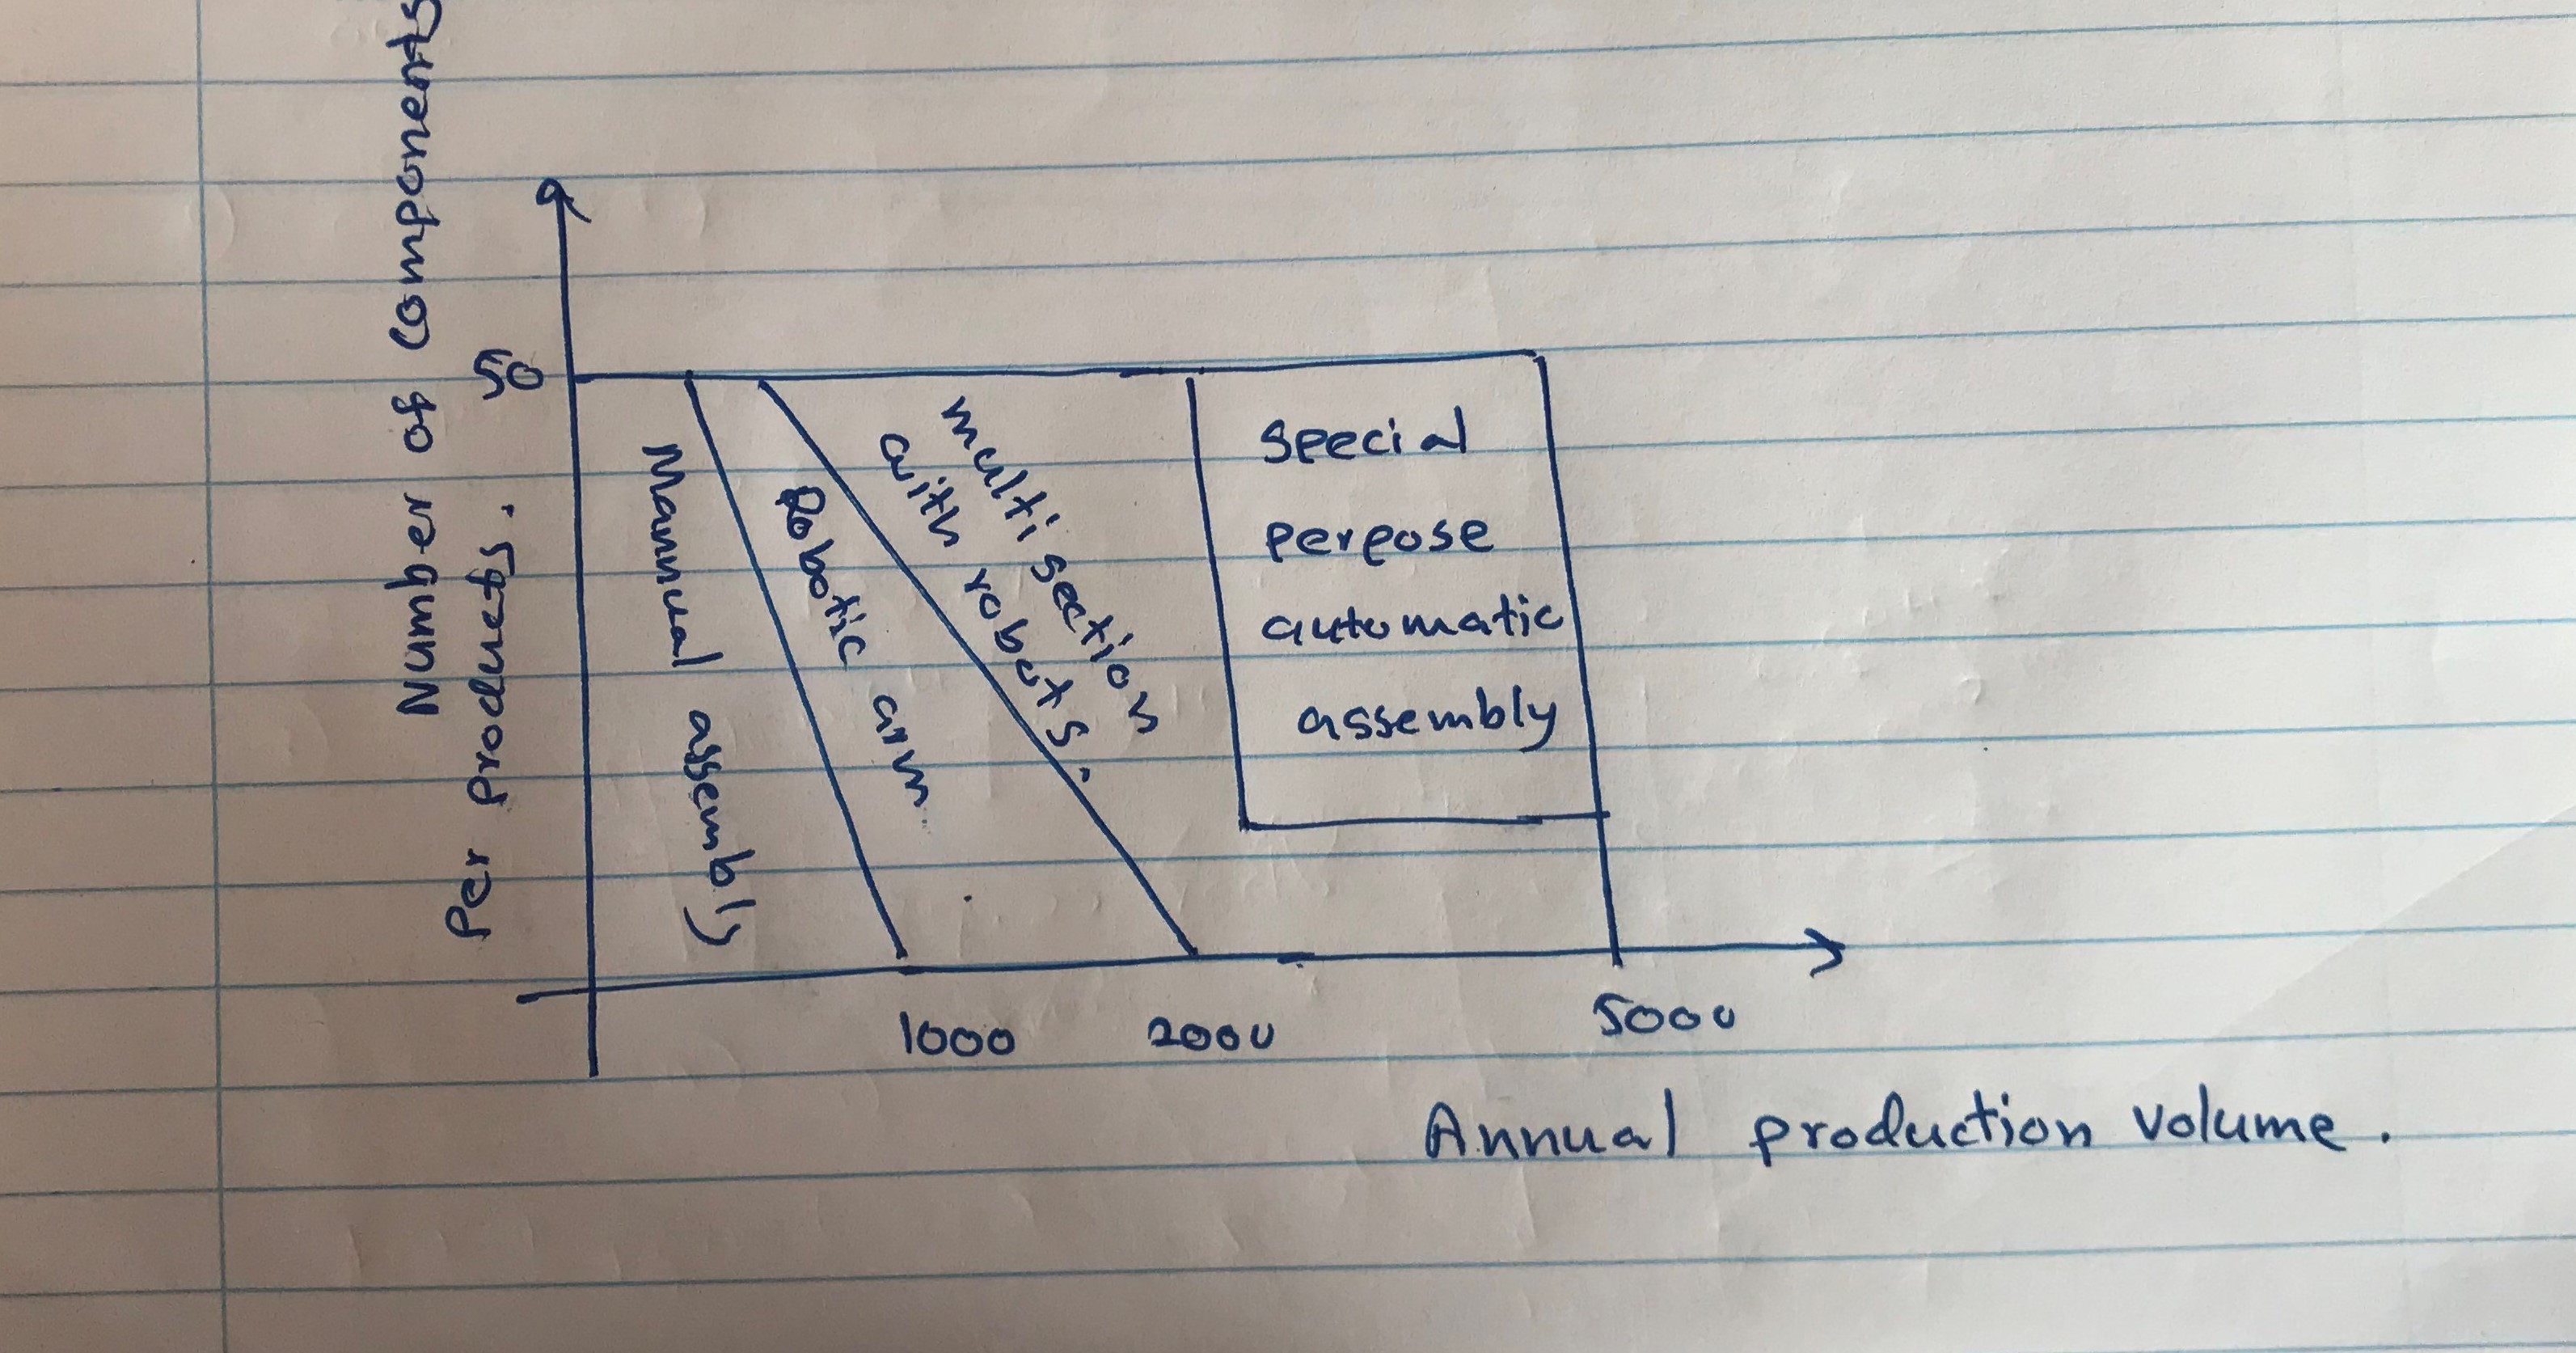 Number of Components
Per products.
50
Mannual assembly
Robotic arm
multi section
with robots.
special
perpose
automatic
assembly
1000
2000
5000
Annual production volume.